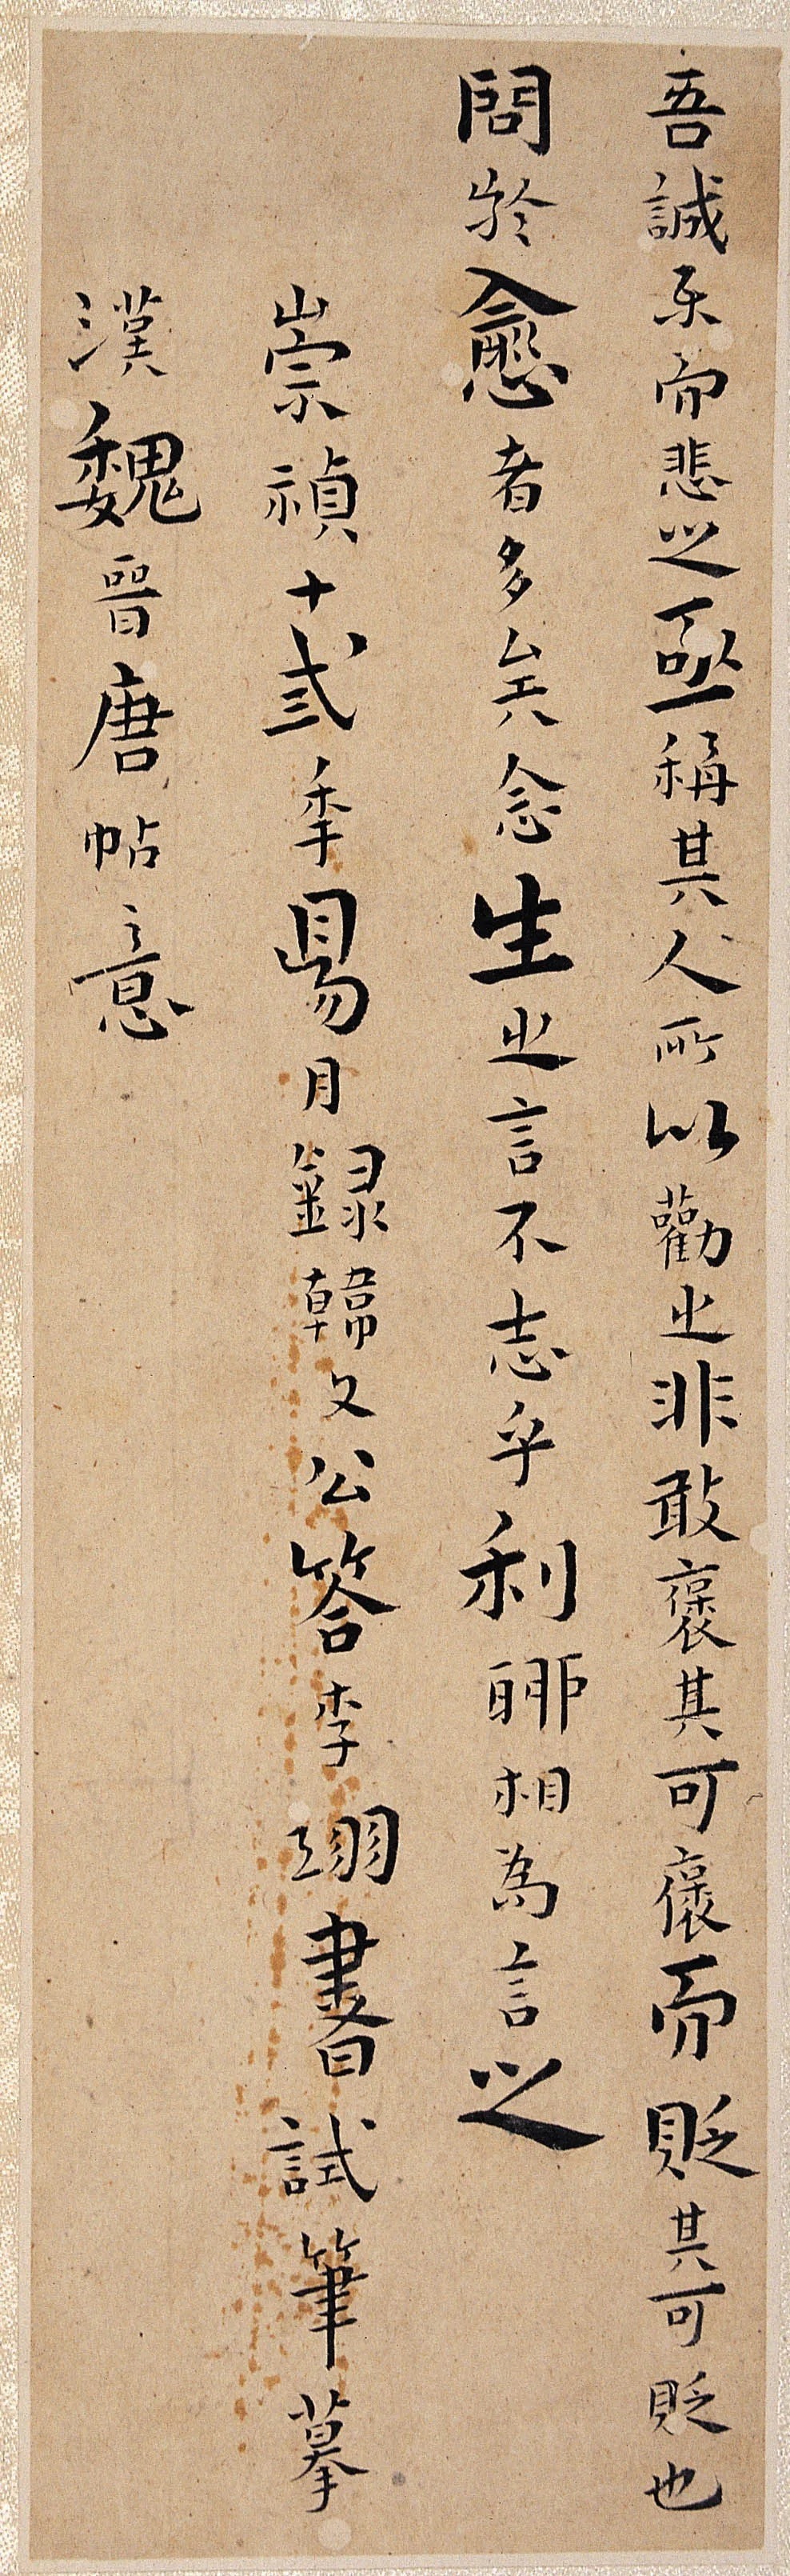 吾誠樂而悲之亟稱其人所以勸之非敢褒其可褒而貶其可貶也
問於愈者多矣念生之言不志乎利聊相為言之
崇禎十弎季昜月錄韓文公答李翊書試筆摹
漢魏晉唐帖意